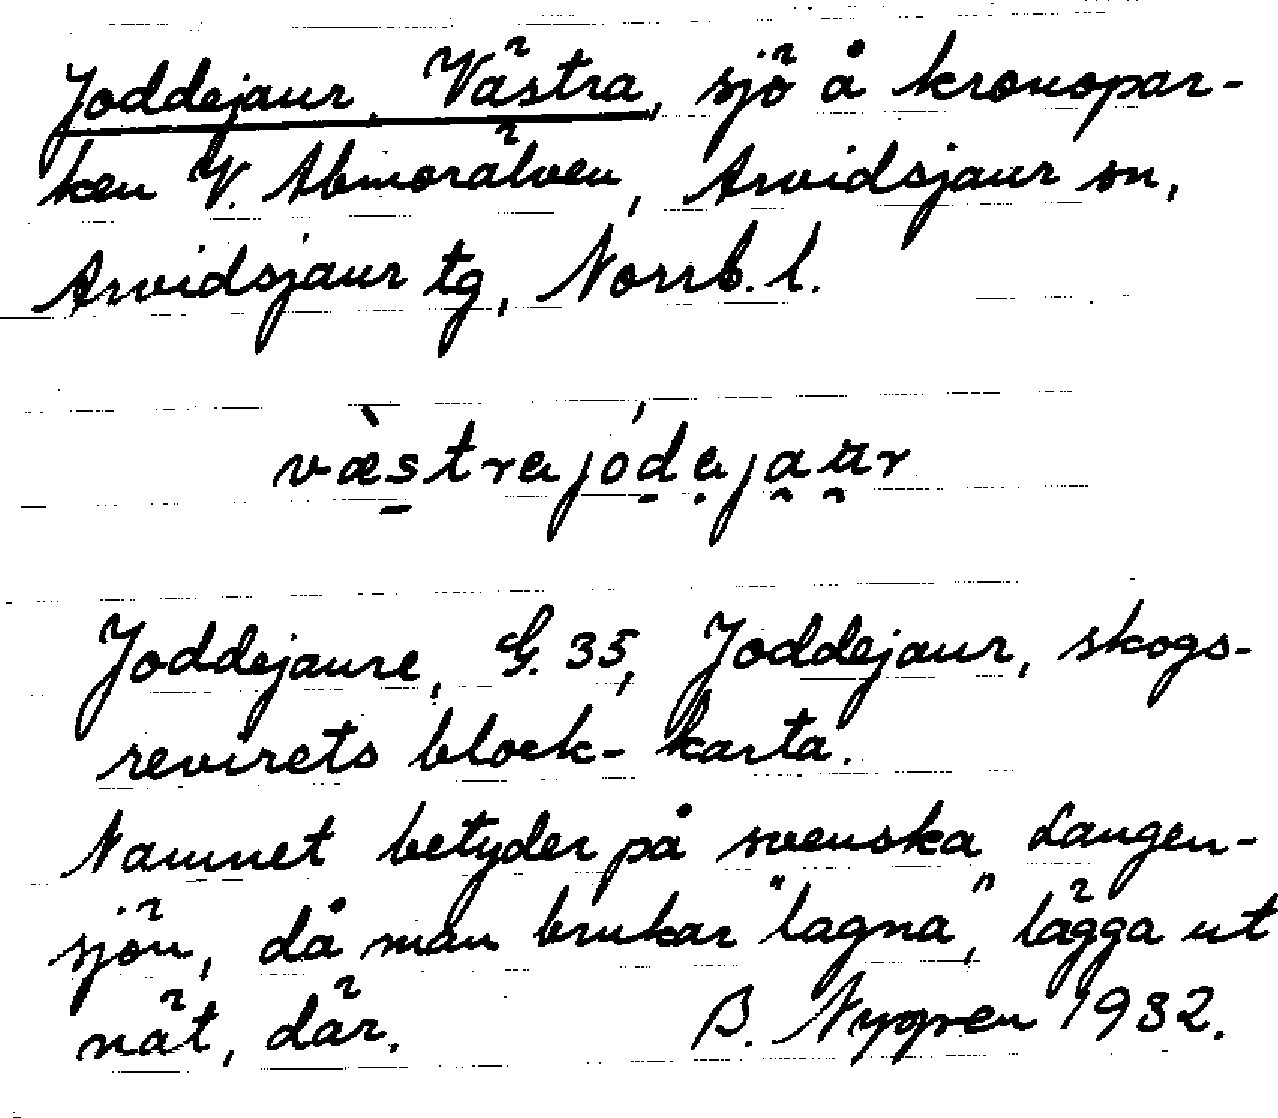 Joddejaur, Västra, sjö å kronopar-
ken V. Abmorälven, Arvidsjaur sn,
Arvidsjaur tg, Norrb. l.
Joddejaure, G. 35, Joddejaur, skogs-
revirets block-karta.
Namnet betyder på svenska Langen-
sjön, då man brukar "lagna", lägga ut
nät, där. B. Nygren 1932.